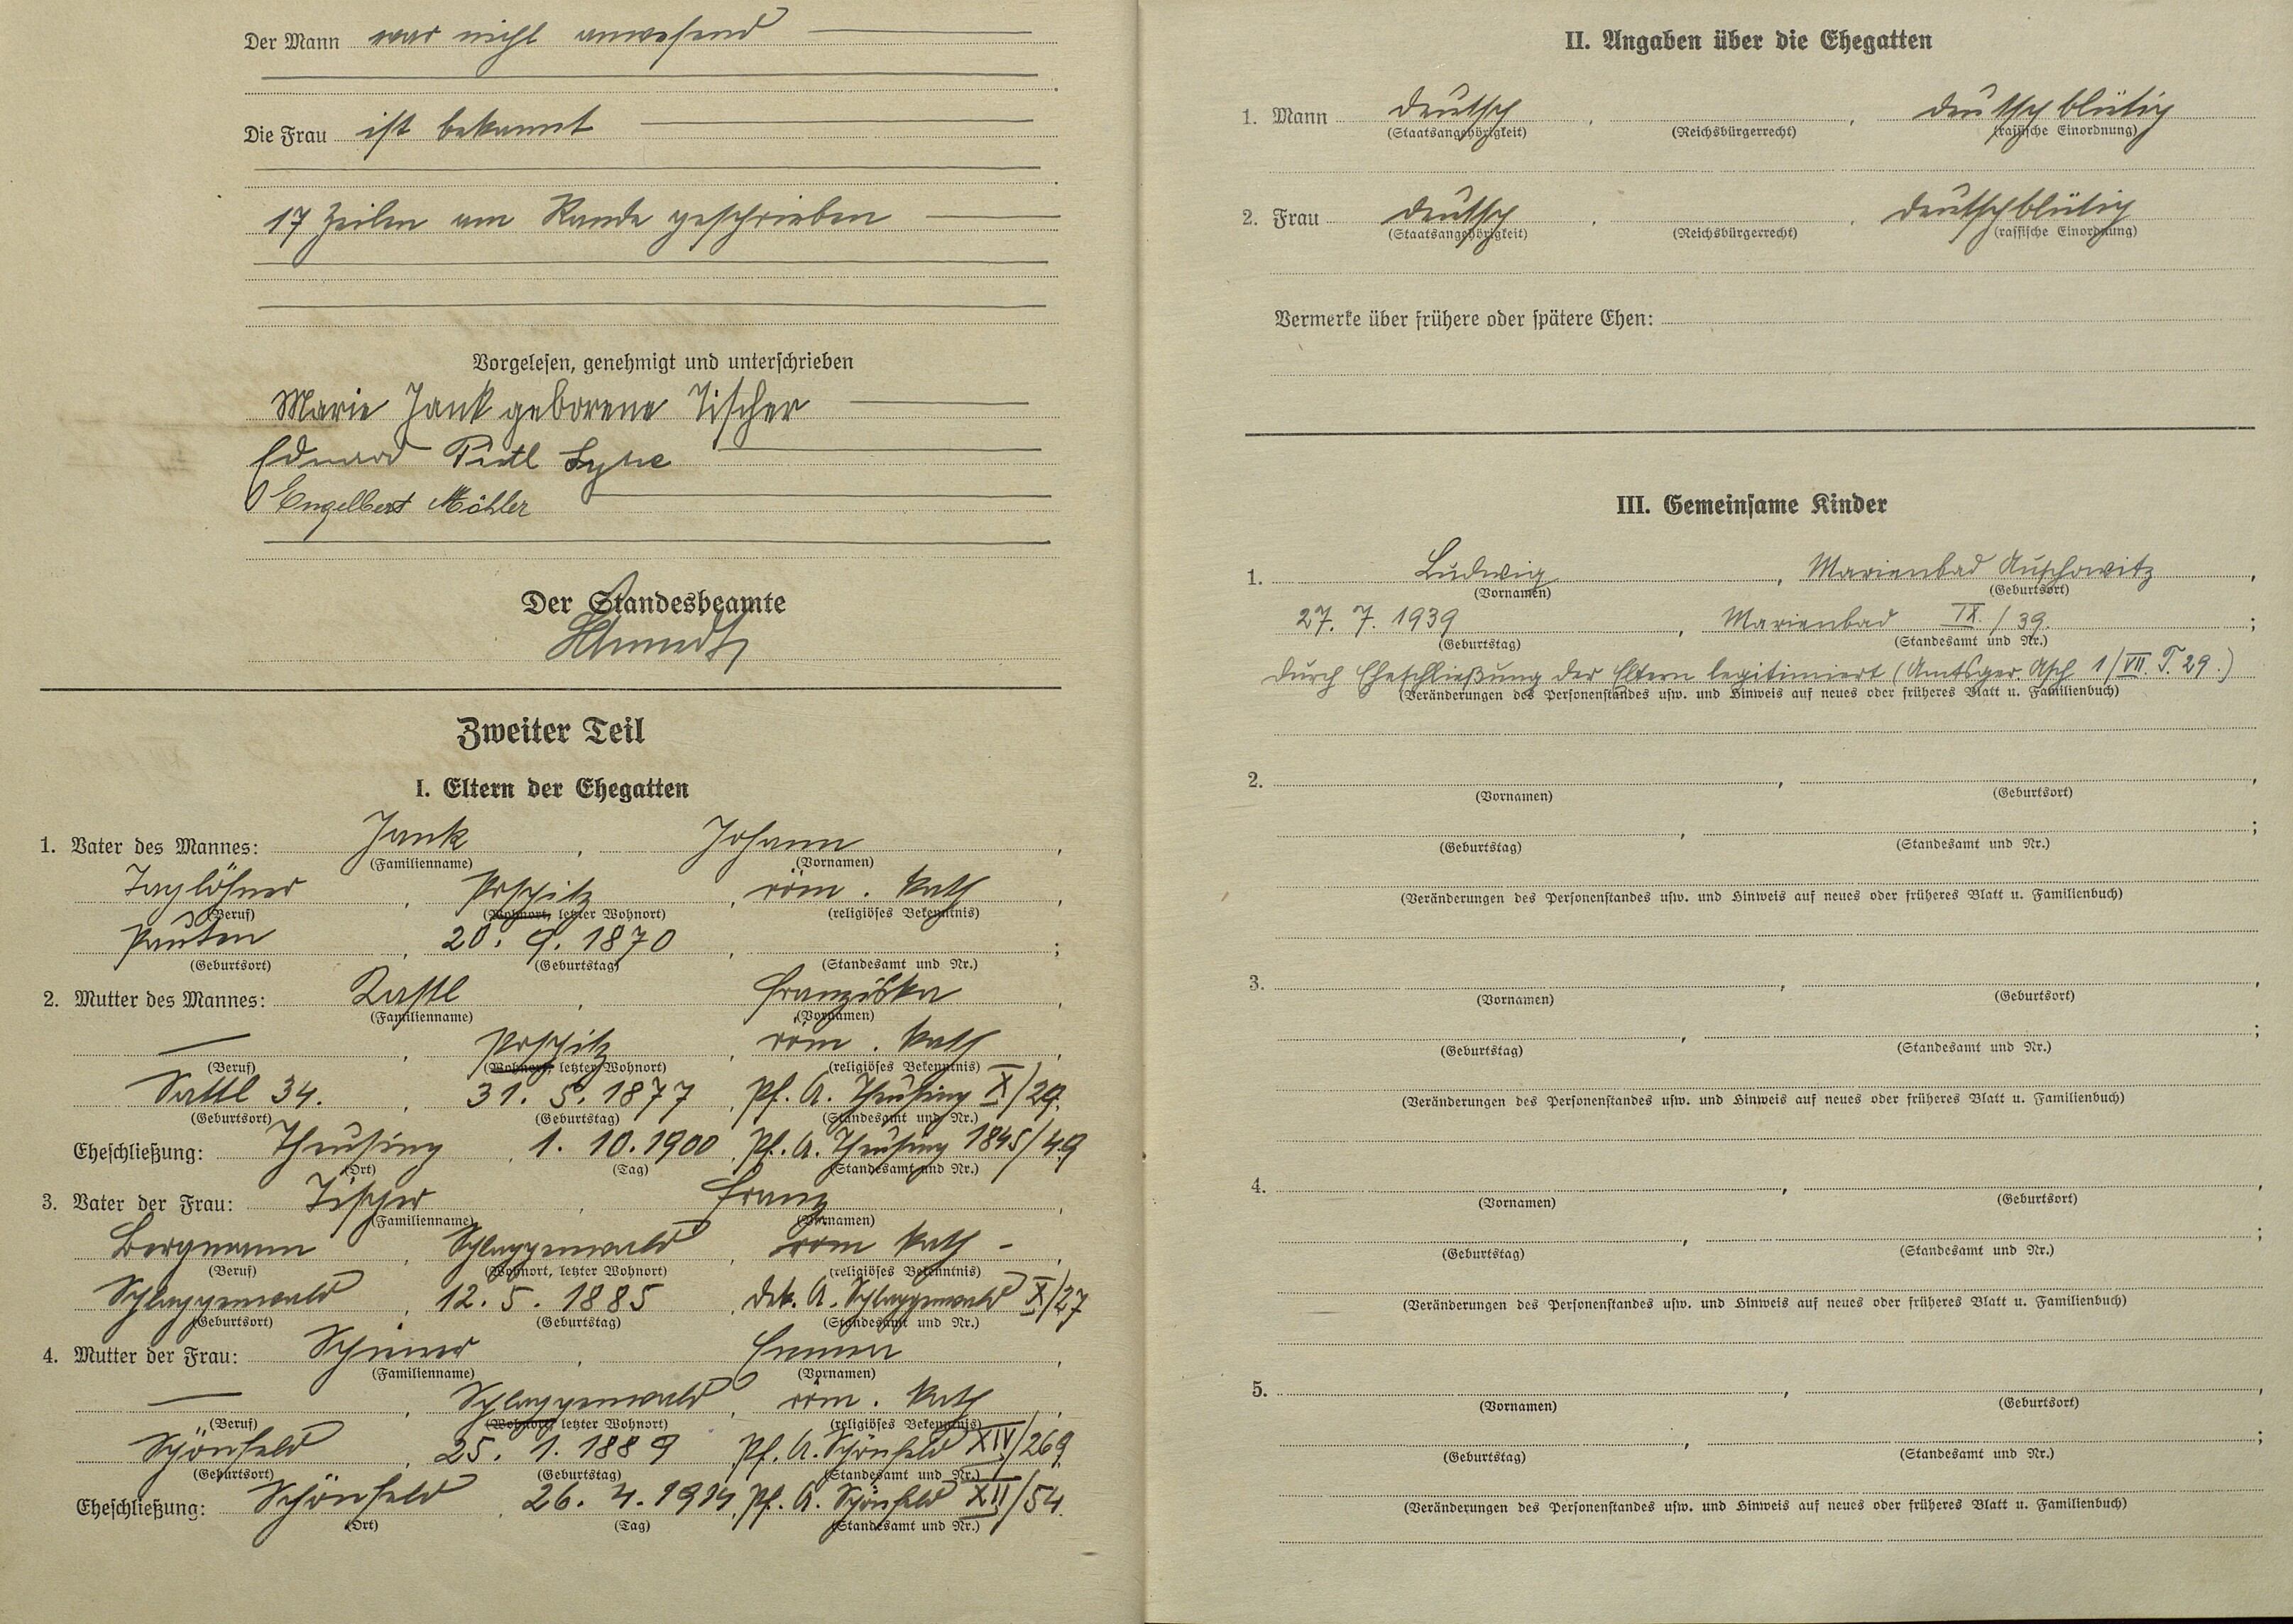 Der Mann war nicht anwesend
Die Frau ist bekannt
17 Zeilen am Rande geschrieben
Vorgelesen, genehmigt und unterschrieben
Marie Jank geborene Tischer
Eduard
Engelbert Möhler
Der Standesbeamte
Zweiter Teil
I. Eltern der Ehegatten
1. Vater des Mannes: Jank, Johann,
(Familienname) (Vornamen)
Taglöhner, Poschitz, röm. kath,
(Beruf) (Wohnort, letzter Wohnort) (religiöses Bekenntnis)
Pauten, 20. 9. 1870, ;
(Geburtsort) (Geburtstag) (Standesamt und Nr.)
2. Mutter des Mannes: Franziska,
(Familienname) (Vornamen)
—, Poschitz, röm. kath,
(Beruf) (Wohnort, letzter Wohnort) (religiöses Bekenntnis)
Sattl 34., 31. 5. 1877, Pf. A. Theusing X/29.
(Geburtsort) (Geburtstag) (Standesamt und Nr.)
Eheschließung: Theusing, 1. 10. 1900, Pf. A. Theusing 1845/49
(Ort) (Tag) (Standesamt und Nr.)
3. Vater der Frau: Tischer, Franz,
(Familienname) (Vornamen)
Bergmann, Schlaggenwald, röm kath -,
(Beruf) (Wohnort, letzter Wohnort) (religiöses Bekenntnis)
Schlaggenwald, 12. 5. 1885, Dek. A. Schlaggenwald X/27
(Geburtsort) (Geburtstag) (Standesamt und Nr.)
4. Mutter der Frau: Emma,
(Familienname) (Vornamen)
—, Schlaggenwald, röm. kath,
(Beruf) (Wohnort, letzter Wohnort) (religiöses Bekenntnis)
Schönfeld, 25. 1. 1889, Pf. A. Schönfeld XIV/269
(Geburtsort) (Geburtstag) (Standesamt und Nr.)
Eheschließung: Schönfeld, 26. 4. 1914, Pf. A. Schönfeld XII/54.
(Ort) (Tag) (Standesamt und Nr.)
II. Angaben über die Ehegatten
1. Mann deutsch, , deutschblütig
(Staatsangehörigkeit) (Reichsbürgerrecht) (rassische Einordnung)
2. Frau deutsch, , deutschblütig
(Staatsangehörigkeit) (Reichsbürgerrecht) (rassische Einordnung)
Vermerke über frühere oder spätere Ehen:
III. Gemeinsame Kinder
1. Ludwig, Marienbad Auschowitz,
(Vornamen) (Geburtsort)
27. 7. 1939, Marienbad IX./39. ;
(Geburtstag) (Standesamt und Nr.)
durch Eheschließung der Eltern legitimiert (Amtsger. Asch 1/VII. T. 29.)
(Veränderungen des Personenstandes usw. und Hinweis auf neues oder früheres Blatt u. Familienbuch)
2. , ,
(Vornamen) (Geburtsort)
, ;
(Geburtstag) (Standesamt und Nr.)
(Veränderungen des Personenstandes usw. und Hinweis auf neues oder früheres Blatt u. Familienbuch)
3. , ,
(Vornamen) (Geburtsort)
, ;
(Geburtstag) (Standesamt und Nr.)
(Veränderungen des Personenstandes usw. und Hinweis auf neues oder früheres Blatt u. Familienbuch)
4. , ,
(Vornamen) (Geburtsort)
, ;
(Geburtstag) (Standesamt und Nr.)
(Veränderungen des Personenstandes usw. und Hinweis auf neues oder früheres Blatt u. Familienbuch)
5. , ,
(Vornamen) (Geburtsort)
, ;
(Geburtstag) (Standesamt und Nr.)
(Veränderungen des Personenstandes usw. und Hinweis auf neues oder früheres Blatt u. Familienbuch)